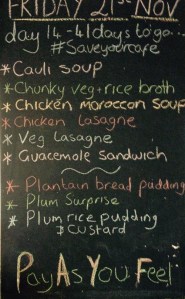 FRIDAY 21st NOV
day 14 - 41 days to go...
#Saveyourcafe
* Cauli soup
* Chunky veg + rice broth
* Chicken Moroccan soup
* Chicken Lasagne
* Veg Lasagne
* Guacemole Sandwich
* Plantain bread pudding
* Plum Surprise
* Plum rice pudding
& Custard
Pay As You Feel